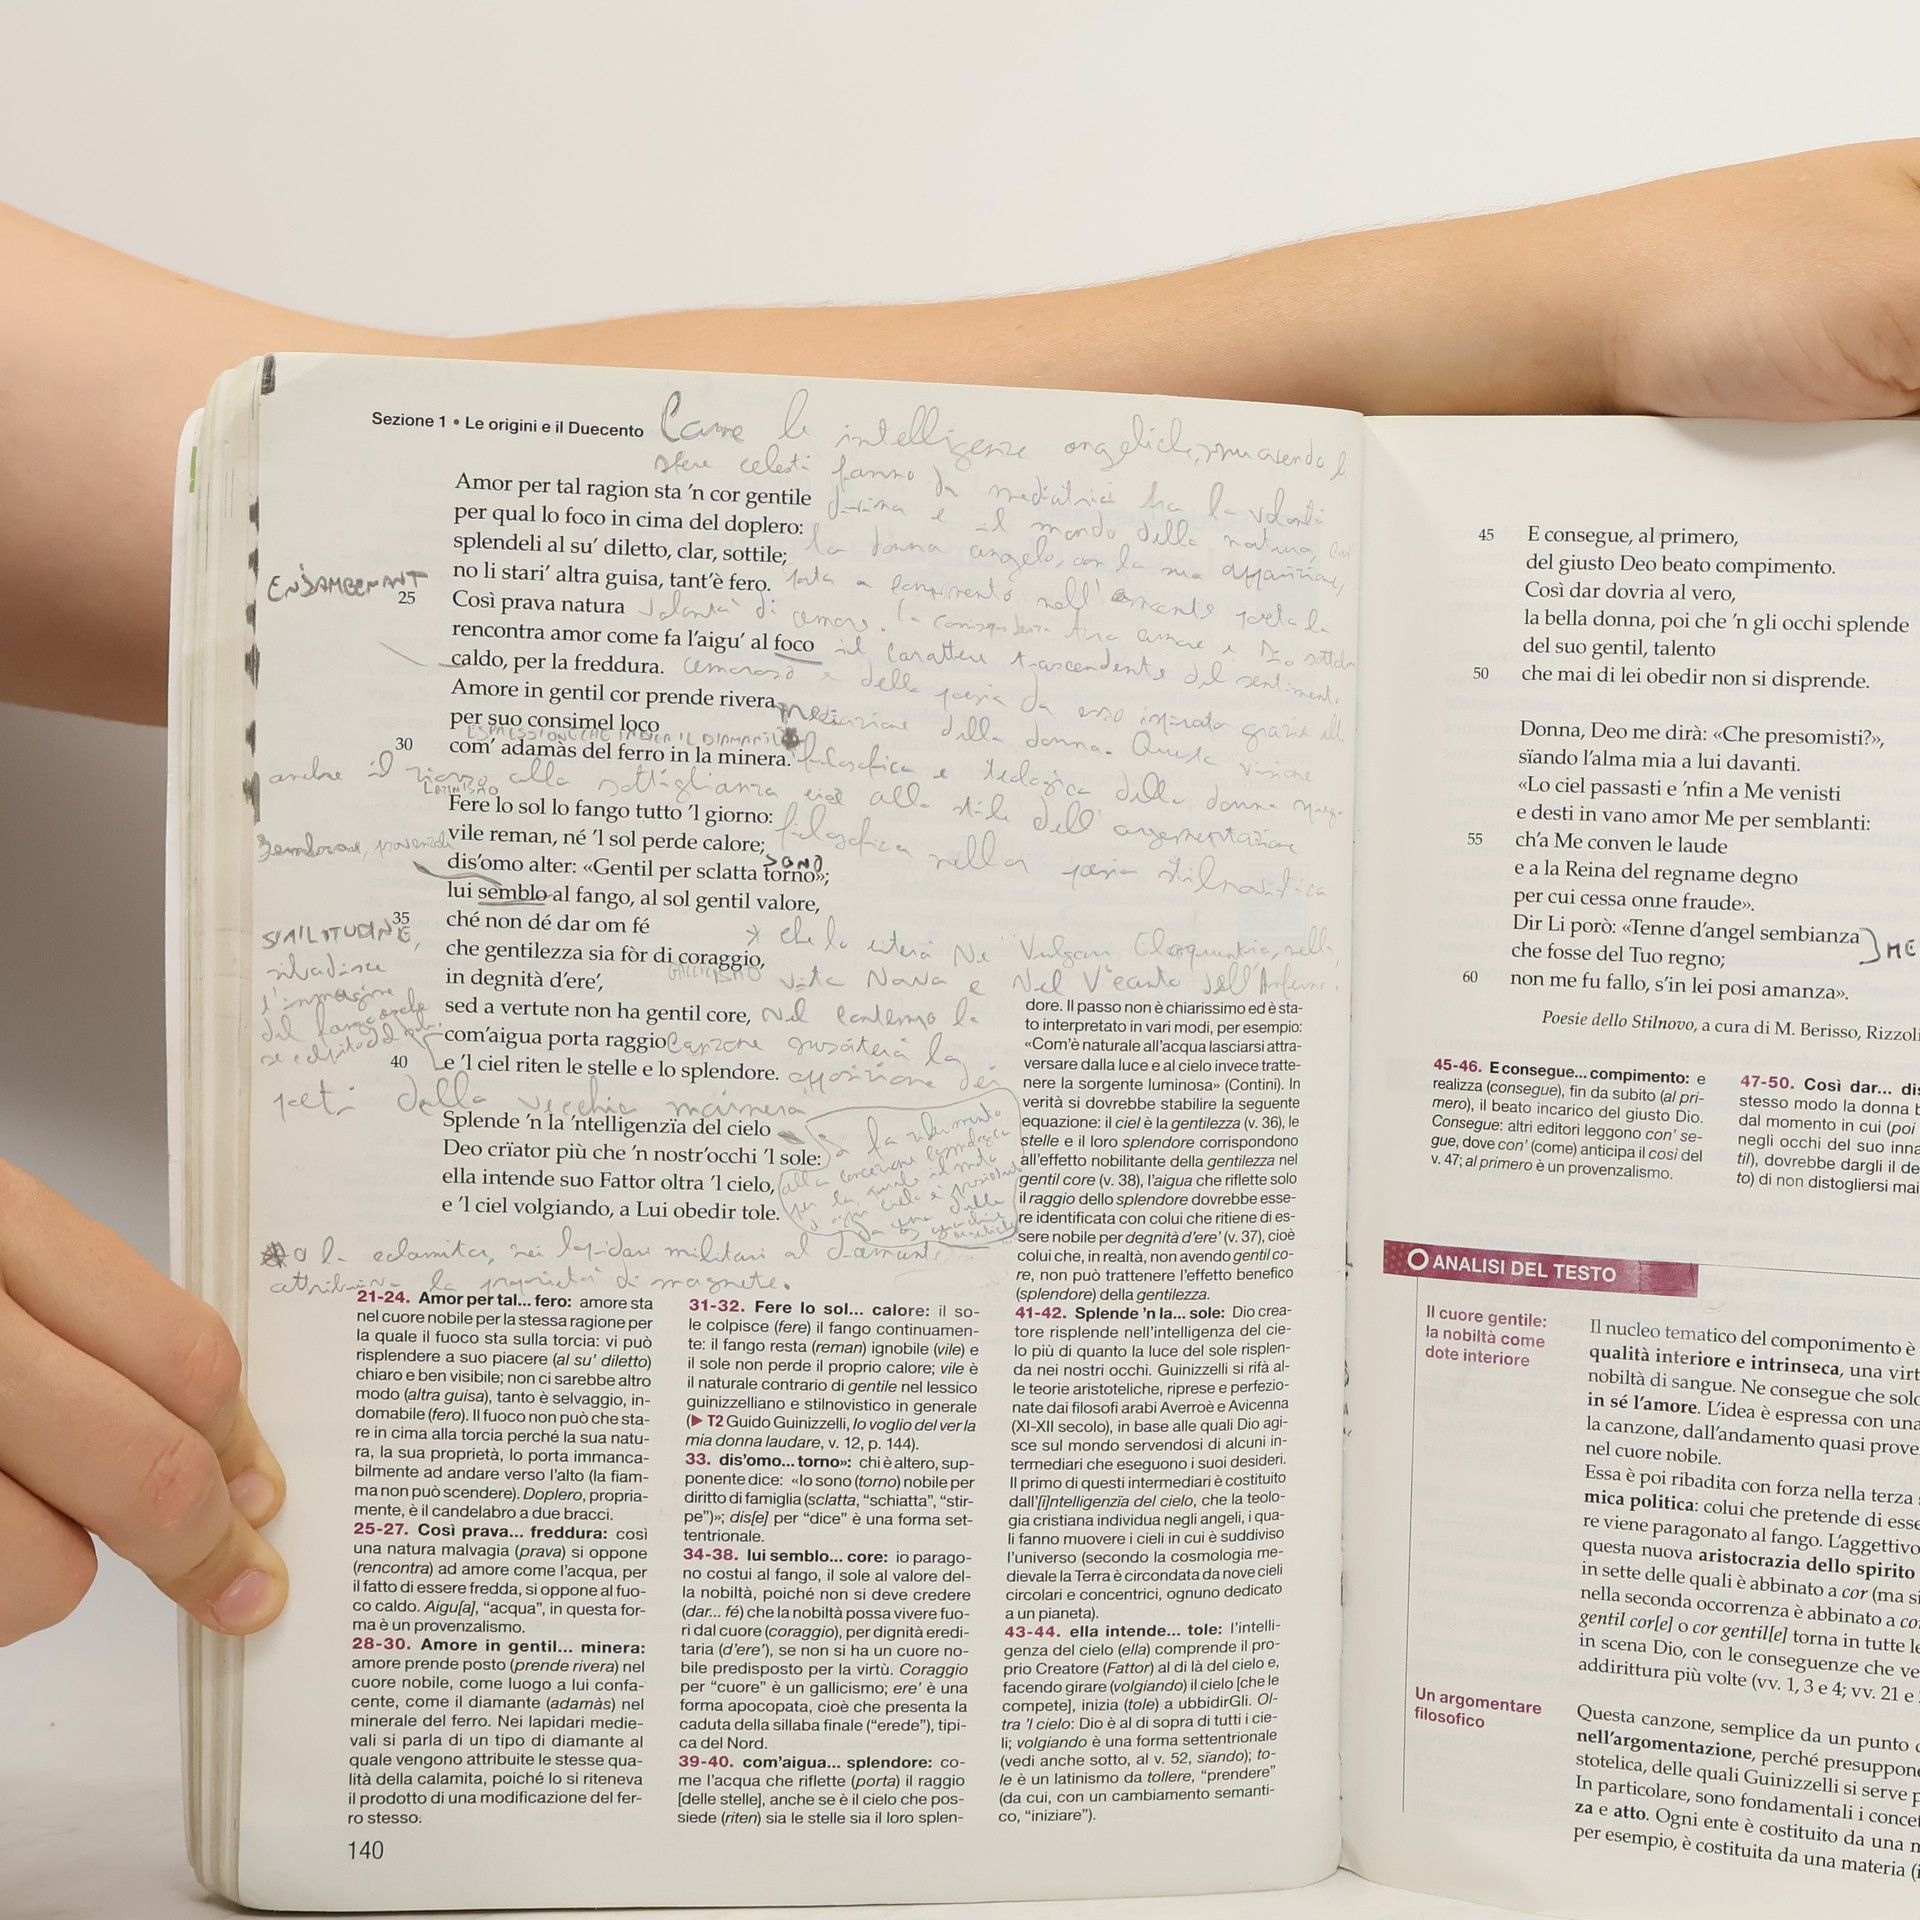 Sezione 1 • Le origini e il Duecento
Come le intelligenze angeliche, muovendo l
sfere celesti fanno da mediatrici tra la volontà
divina e il mondo della natura, così
la donna angelo, con la sua apparizione,
porta a compimento nell'amante
volontà di amore. la tra amore e Dio
il carattere trascendente del sentimento
amoroso e della poesia da esso ispirata grazie alla
mediazione della donna. Questa visione
filosofica e teologica della donna
anche il alla sottigliezza alla stile dell'argomentazione
filosofica nella poesia stilnovistica
Amor per tal ragion sta 'n cor gentile
per qual lo foco in cima del doplero:
splendeli al su' diletto, clar, sottile;
no li stari' altra guisa, tant'è fero.
ENJAMBEMENT
25 Così prava natura
rencontra amor come fa l'aigu' al foco
caldo, per la freddura.
Amore in gentil cor prende rivera
per suo consimel loco
ESPRESSIONE CHE INDICA IL DIAMANTE
30 com' adamàs del ferro in la minera.
LATINISMO
Fere lo sol lo fango tutto 'l giorno:
vile reman, né 'l sol perde calore;
SONO
dis'omo alter: «Gentil per sclatta torno»;
lui semblo al fango, al sol gentil valore,
35 ché non dé dar om fé
SIMILITUDINE,
ribadisce
l'immagine
del fango che
se colpito dal
che gentilezza sia fòr di coraggio,
GALLICISMO
in degnità d'ere',
sed a vertute non ha gentil core,
com'aigua porta raggio
40 e 'l ciel riten le stelle e lo splendore.
che lo citerà Ne Vulgari Eloquentia, nella
vita Nova e Nel V canto dell'Inferno.
Nel contempo la
canzone susciterà la
opposizione dei
poeti della vecchia maniera
Splende 'n la 'ntelligenzïa del cielo
Deo crïator più che 'n nostr'occhi 'l sole:
ella intende suo Fattor oltra 'l cielo,
e 'l ciel volgiando, a Lui obedir tole.
Si fa riferimento
alla concezione cosmologica
per la quale il moto
di ogni cielo è
da una delle
angeliche
o la calamita, nei lapidari militari al diamante
la proprietà di magnete.
21-24. Amor per tal... fero: amore sta
nel cuore nobile per la stessa ragione per
la quale il fuoco sta sulla torcia: vi può
risplendere a suo piacere (al su' diletto)
chiaro e ben visibile; non ci sarebbe altro
modo (altra guisa), tanto è selvaggio, in-
domabile (fero). Il fuoco non può che sta-
re in cima alla torcia perché la sua natu-
ra, la sua proprietà, lo porta immanca-
bilmente ad andare verso l'alto (la fiam-
ma non può scendere). Doplero, propria-
mente, è il candelabro a due bracci.
25-27. Così prava... freddura: così
una natura malvagia (prava) si oppone
(rencontra) ad amore come l'acqua, per
il fatto di essere fredda, si oppone al fuo-
co caldo. Aigu[a], "acqua", in questa for-
ma è un provenzalismo.
28-30. Amore in gentil... minera:
amore prende posto (prende rivera) nel
cuore nobile, come luogo a lui confa-
cente, come il diamante (adamàs) nel
minerale del ferro. Nei lapidari medie-
vali si parla di un tipo di diamante al
quale vengono attribuite le stesse qua-
lità della calamita, poiché lo si riteneva
il prodotto di una modificazione del fer-
ro stesso.
31-32. Fere lo sol... calore: il so-
le colpisce (fere) il fango continuamen-
te: il fango resta (reman) ignobile (vile) e
il sole non perde il proprio calore; vile è
il naturale contrario di gentile nel lessico
guinizzelliano e stilnovistico in generale
(▶ T2 Guido Guinizzelli, Io voglio del ver la
mia donna laudare, v. 12, p. 144).
33. dis'omo... torno»: chi è altero, sup-
ponente dice: «Io sono (torno) nobile per
diritto di famiglia (sclatta, "schiatta", "stir-
pe")»; dis[e] per "dice" è una forma set-
tentrionale.
34-38. lui semblo... core: io parago-
no costui al fango, il sole al valore del-
la nobiltà, poiché non si deve credere
(dar... fé) che la nobiltà possa vivere fuo-
ri dal cuore (coraggio), per dignità eredi-
taria (d'ere'), se non si ha un cuore no-
bile predisposto per la virtù. Coraggio
per "cuore" è un gallicismo; ere' è una
forma apocopata, cioè che presenta la
caduta della sillaba finale ("erede"), tipi-
ca del Nord.
39-40. com'aigua... splendore: co-
me l'acqua che riflette (porta) il raggio
[delle stelle], anche se è il cielo che pos-
siede (riten) sia le stelle sia il loro splen-
dore. Il passo non è chiarissimo ed è sta-
to interpretato in vari modi, per esempio:
«Com'è naturale all'acqua lasciarsi attra-
versare dalla luce e al cielo invece tratte-
nere la sorgente luminosa» (Contini). In
verità si dovrebbe stabilire la seguente
equazione: il ciel è la gentilezza (v. 36), le
stelle e il loro splendore corrispondono
all'effetto nobilitante della gentilezza nel
gentil core (v. 38), l'aigua che riflette solo
il raggio dello splendore dovrebbe esse-
re identificata con colui che ritiene di es-
sere nobile per degnità d'ere' (v. 37), cioè
colui che, in realtà, non avendo gentil co-
re, non può trattenere l'effetto benefico
(splendore) della gentilezza.
41-42. Splende 'n la... sole: Dio crea-
tore risplende nell'intelligenza del cie-
lo più di quanto la luce del sole risplen-
da nei nostri occhi. Guinizzelli si rifà al-
le teorie aristoteliche, riprese e perfezio-
nate dai filosofi arabi Averroè e Avicenna
(XI-XII secolo), in base alle quali Dio agi-
sce sul mondo servendosi di alcuni in-
termediari che eseguono i suoi desideri.
Il primo di questi intermediari è costituito
dall'[i]ntelligenzïa del cielo, che la teolo-
gia cristiana individua negli angeli, i qua-
li fanno muovere i cieli in cui è suddiviso
l'universo (secondo la cosmologia me-
dievale la Terra è circondata da nove cieli
circolari e concentrici, ognuno dedicato
a un pianeta).
43-44. ella intende... tole: l'intelli-
genza del cielo (ella) comprende il pro-
prio Creatore (Fattor) al di là del cielo e,
facendo girare (volgiando) il cielo [che le
compete], inizia (tole) a ubbidirGli. Ol-
tra 'l cielo: Dio è al di sopra di tutti i cie-
li; volgiando è una forma settentrionale
(vedi anche sotto, al v. 52, sïando); to-
le è un latinismo da tollere, "prendere"
(da cui, con un cambiamento semanti-
co, "iniziare").
140
45 E consegue, al primero,
del giusto Deo beato compimento.
Così dar dovria al vero,
la bella donna, poi che 'n gli occhi splende
del suo gentil, talento
50 che mai di lei obedir non si disprende.
Donna, Deo me dirà: «Che presomisti?»,
sïando l'alma mia a lui davanti.
«Lo ciel passasti e 'nfin a Me venisti
e desti in vano amor Me per semblanti:
55 ch'a Me conven le laude
e a la Reina del regname degno
per cui cessa onne fraude».
Dir Li porò: «Tenne d'angel sembianza
che fosse del Tuo regno;
60 non me fu fallo, s'in lei posi amanza».
ME
Poesie dello Stilnovo, a cura di M. Berisso, Rizzoli
45-46. E consegue... compimento: e
realizza (consegue), fin da subito (al pri-
mero), il beato incarico del giusto Dio.
Consegue: altri editori leggono con' se-
gue, dove con' (come) anticipa il così del
v. 47; al primero è un provenzalismo.
47-50. Così dar... dis
stesso modo la donna b
dal momento in cui (poi
negli occhi del suo inna
til), dovrebbe dargli il de
to) di non distogliersi mai
ANALISI DEL TESTO
Il cuore gentile:
la nobiltà come
dote interiore
Il nucleo tematico del componimento è
qualità interiore e intrinseca, una virt
nobiltà di sangue. Ne consegue che solo
in sé l'amore. L'idea è espressa con una
la canzone, dall'andamento quasi prove
nel cuore nobile.
Essa è poi ribadita con forza nella terza
mica politica: colui che pretende di esse
re viene paragonato al fango. L'aggettivo
questa nuova aristocrazia dello spirito
in sette delle quali è abbinato a cor (ma si
nella seconda occorrenza è abbinato a co
gentil cor[e] o cor gentil[e] torna in tutte le
in scena Dio, con le conseguenze che ve
addirittura più volte (vv. 1, 3 e 4; vv. 21 e
Un argomentare
filosofico
Questa canzone, semplice da un punto
nell'argomentazione, perché presuppone
stotelica, delle quali Guinizzelli si serve p
In particolare, sono fondamentali i concet
za e atto. Ogni ente è costituito da una m
per esempio, è costituita da una materia (i